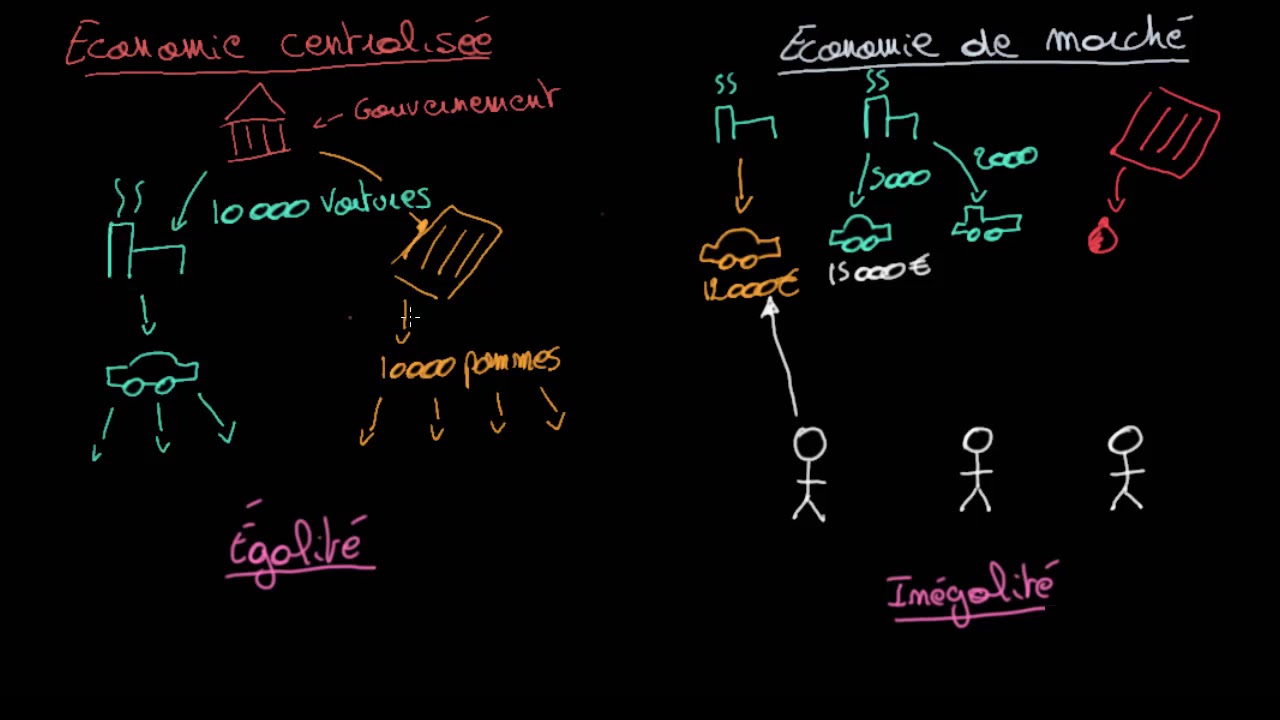 Economie centralisée
Gouvernement
10 000 Voitures
10000 pommes
Égalité
Economie de marché
5000
2000
12000€
15000€
Inégalité